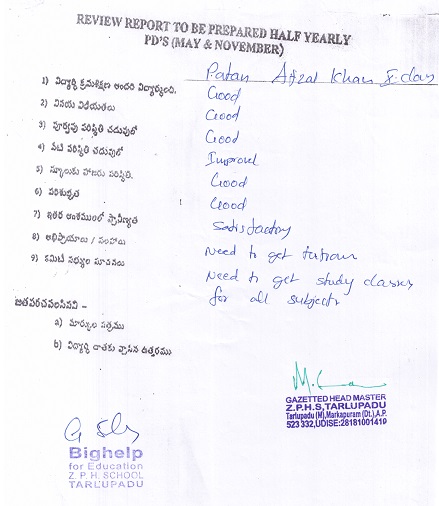 REVIEW REPORT TO BE PREPARED HALF YEARLY
PD'S (MAY & NOVEMBER)
Patan Afzal Khan X-class
1) విద్యార్థి క్రమశిక్షణ అందరి విద్యార్థులంది. Good
2) వినయ విధేయతలు Good
3) పూర్వపు పరిస్థితి చదువులో Good
4) నేటి పరిస్థితి చదువులో Improved
5) స్కూలుకు హాజరు పరిస్థితి. Good
6) పరిశుభ్రత Good
7) ఇతర అంశములలో ప్రావీణ్యత Satisfactory
8) అభిప్రాయాలు / సలహాలు Need to get tutions
9) కమిటీ సభ్యుల సూచనలు Need to get study classes
for all subjects
జతపరచవలసినవి –
a) మార్కుల పత్రము
b) విద్యార్థి దాతకు వ్రాసిన ఉత్తరము
GAZETTED HEAD MASTER
Z.P.H.S, TARLUPADU
Tarlupadu (M), Markapuram (Dt.), A.P.
523 332, UDISE:28181001419
Bighelp
for Education
Z. P. H. SCHOOL
TARLUPADU